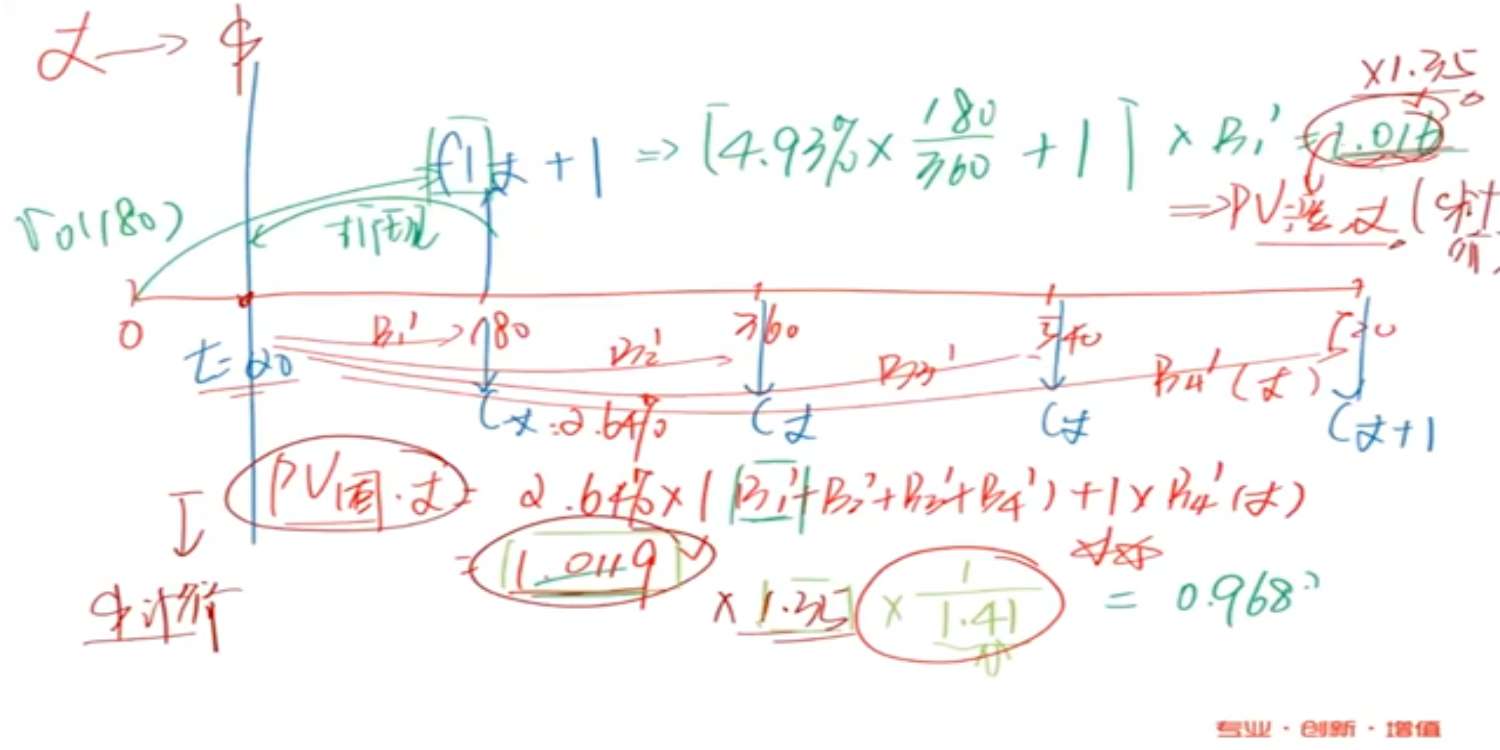 £ → $
×1.35
r0(180)
f1£ + 1 ⇒ [4.93% × 180/360 + 1] × B1' = 1.016
折现
⇒ PV浮.£ ($计价)
0
t=20
B1' → 180
B2' 360
B3' 540
B4'(£)
C£=2.64%
C£
C£
C£+1
PV固.£ = 2.64% × (B1'+B2'+B3'+B4') + 1×B4'(£)
= 1.0119
× 1.35 × 1/1.41 = 0.968
$计价
专业·创新·增值